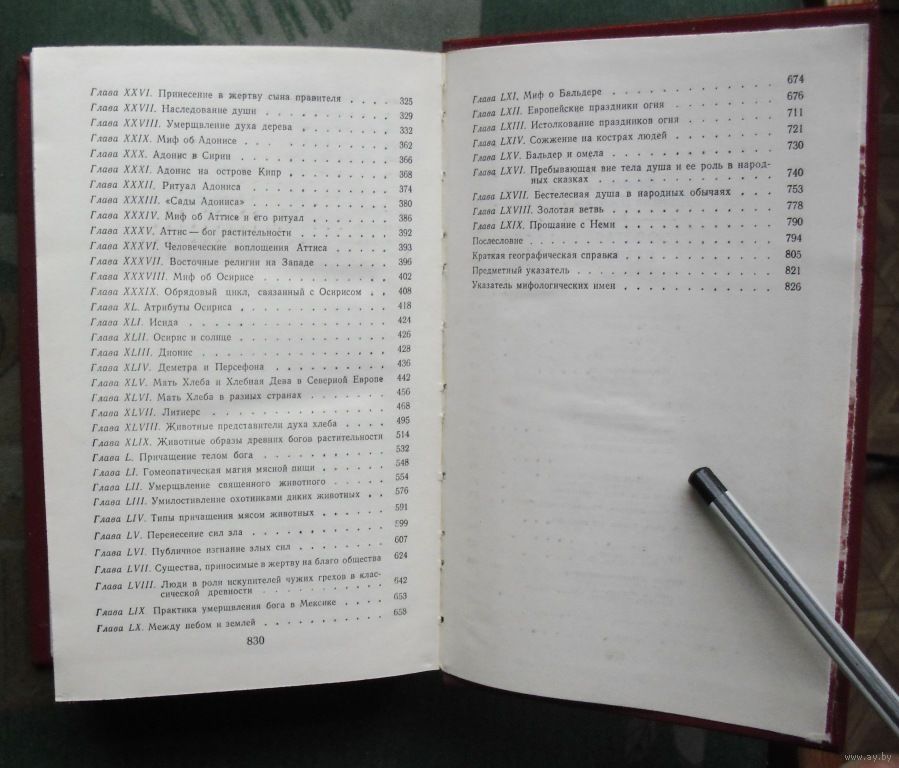 Глава XXVI. Принесение в жертву сына правителя . . . . 325
Глава XXVII. Наследование души . . . . . . . . . 329
Глава XXVIII. Умерщвление духа дерева . . . . . . . 332
Глава XXIX. Миф об Адонисе . . . . . . . . . . 362
Глава XXX. Адонис в Сирии . . . . . . . . . . . 366
Глава XXXI. Адонис на острове Кипр . . . . . . . . 368
Глава XXXII. Ритуал Адониса . . . . . . . . . . 374
Глава XXXIII. «Сады Адониса» . . . . . . . . . . 380
Глава XXXIV. Миф об Аттисе и его ритуал . . . . . . 386
Глава XXXV. Аттис — бог растительности . . . . . . . 392
Глава XXXVI. Человеческие воплощения Аттиса . . . . . 393
Глава XXXVII. Восточные религии на Западе . . . . . . 396
Глава XXXVIII. Миф об Осирисе . . . . . . . . . 402
Глава XXXIX. Обрядовый цикл, связанный с Осирисом . . 408
Глава XL. Атрибуты Осириса . . . . . . . . . . . 418
Глава XLI. Исида . . . . . . . . . . . . . . 424
Глава XLII. Осирис и солнце . . . . . . . . . . . 426
Глава XLIII. Дионис . . . . . . . . . . . . . 428
Глава XLIV. Деметра и Персефона . . . . . . . . . 436
Глава XLV. Мать Хлеба и Хлебная Дева в Северной Европе 442
Глава XLVI. Мать Хлеба в разных странах . . . . . . 456
Глава XLVII. Литиерс . . . . . . . . . . . . . 468
Глава XLVIII. Животные представители духа хлеба . . . . 495
Глава XLIX. Животные образы древних богов растительности 514
Глава L. Причащение телом бога . . . . . . . . . 532
Глава LI. Гомеопатическая магия мясной пищи . . . . . 548
Глава LII. Умерщвление священного животного . . . . . 554
Глава LIII. Умилостивление охотниками диких животных . . 576
Глава LIV. Типы причащения мясом животных . . . . . 591
Глава LV. Перенесение сил зла . . . . . . . . . . 599
Глава LVI. Публичное изгнание злых сил . . . . . . . 607
Глава LVII. Существа, приносимые в жертву на благо общества 624
Глава LVIII. Люди в роли искупителей чужих грехов в клас-
сической древности . . . . . . . . . . 642
Глава LIX. Практика умерщвления бога в Мексике . . . . 653
Глава LX. Между небом и землей . . . . . . . . . 658
830
Глава LXI. Миф о Бальдере . . . . . . . . . . . 674
Глава LXII. Европейские праздники огня . . . . . . . 676
Глава LXIII. Истолкование праздников огня . . . . . . 711
Глава LXIV. Сожжение на кострах людей . . . . . . . 721
Глава LXV. Бальдер и омела . . . . . . . . . . . 730
Глава LXVI. Пребывающая вне тела душа и ее роль в народ-
ных сказках . . . . . . . . . . . . 740
Глава LXVII. Бестелесная душа в народных обычаях . . . 753
Глава LXVIII. Золотая ветвь . . . . . . . . . . . 778
Глава LXIX. Прощание с Неми . . . . . . . . . . 790
Послесловие . . . . . . . . . . . . . . . . 794
Краткая географическая справка . . . . . . . . . . 805
Предметный указатель . . . . . . . . . . . . . 821
Указатель мифологических имен . . . . . . . . . . 826
www.ay.by